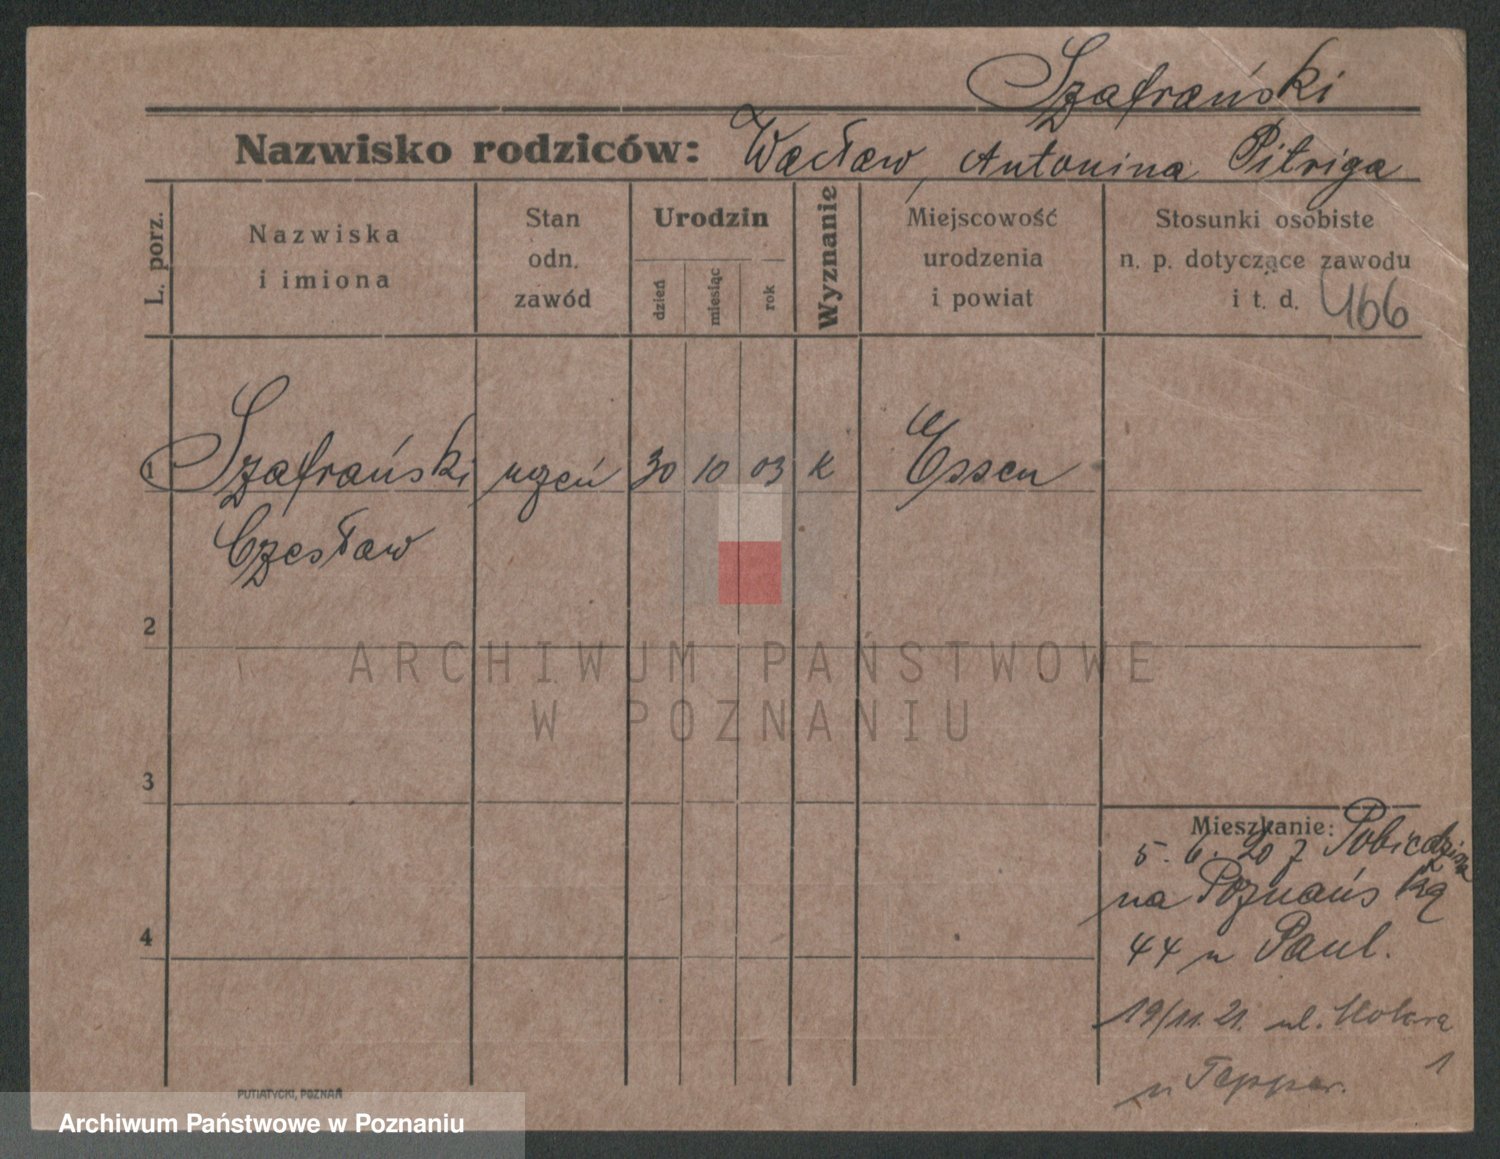 Szafrański
Nazwisko rodziców: Wacław, Antonina Pitriga
L. porz.
Nazwiska
i imiona
Stan
odn.
zawód
Urodzin
dzień
miesiąc
rok
Wyznanie
Miejscowość
urodzenia
i powiat
Stosunki osobiste
n. p. dotyczące zawodu
i t. d.
466
1 Szafrański uczeń 30 10 03 k Essen
Czesław
2
3
4
Mieszkanie:
5. 6. 20 z Pobiedzisk
na Poznańską
44 u Paul.
19/11. 21. ul.
1
u Tepper.
PUTIATYCKI, POZNAŃ
ARCHIWUM PAŃSTWOWE
W POZNANIU
Archiwum Państwowe w Poznaniu